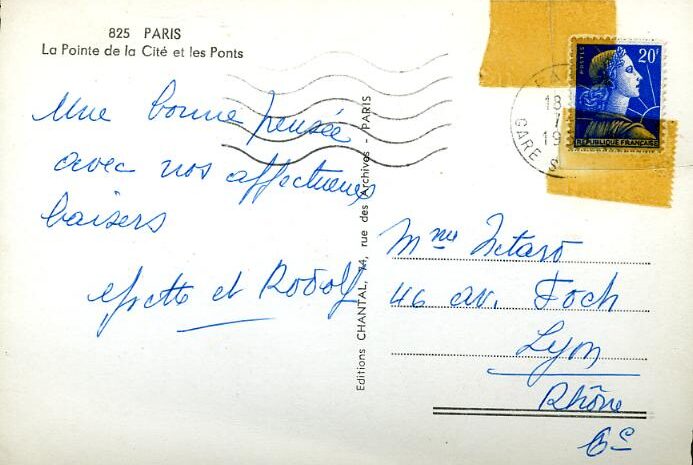 825 PARIS
La Pointe de la Cité et les Ponts
Une bonne pensée
avec nos affectueux
baisers
Yvette et Rodolf
Editions CHANTAL, 74, rue des Archives - PARIS
POSTES
20F
REPUBLIQUE FRANÇAISE
18
7
19
GARE S
Mme
46 av. Foch
Lyon
Rhône